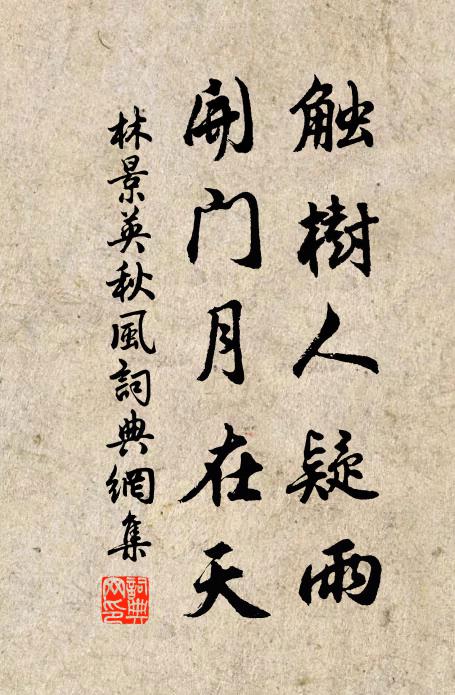 触樹人疑雨
開门月在天
林景英秋風詞典網集
詞典网印